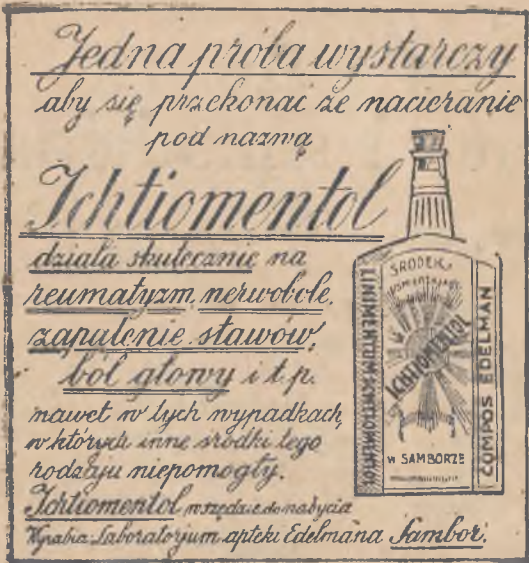 Jedna próba wystarczy
aby się przekonać że nacieranie
pod nazwą
Ichtiomentol
działa skutecznie na
reumatyzm, nerwobole,
zapalenie stawów,
ból głowy i t.p.
nawet w tych wypadkach,
w których inne środki tego
rodzaju niepomogły.
Ichtiomentol wszędzie do nabycia
Wyrabia Laboratorjum apteki Edelmana Sambor.
ŚRODEK
ICHTIOMENTOL
W SAMBORZE
LINIMENTUM ICHTIOMENTOL
COMPOS EDELMAN